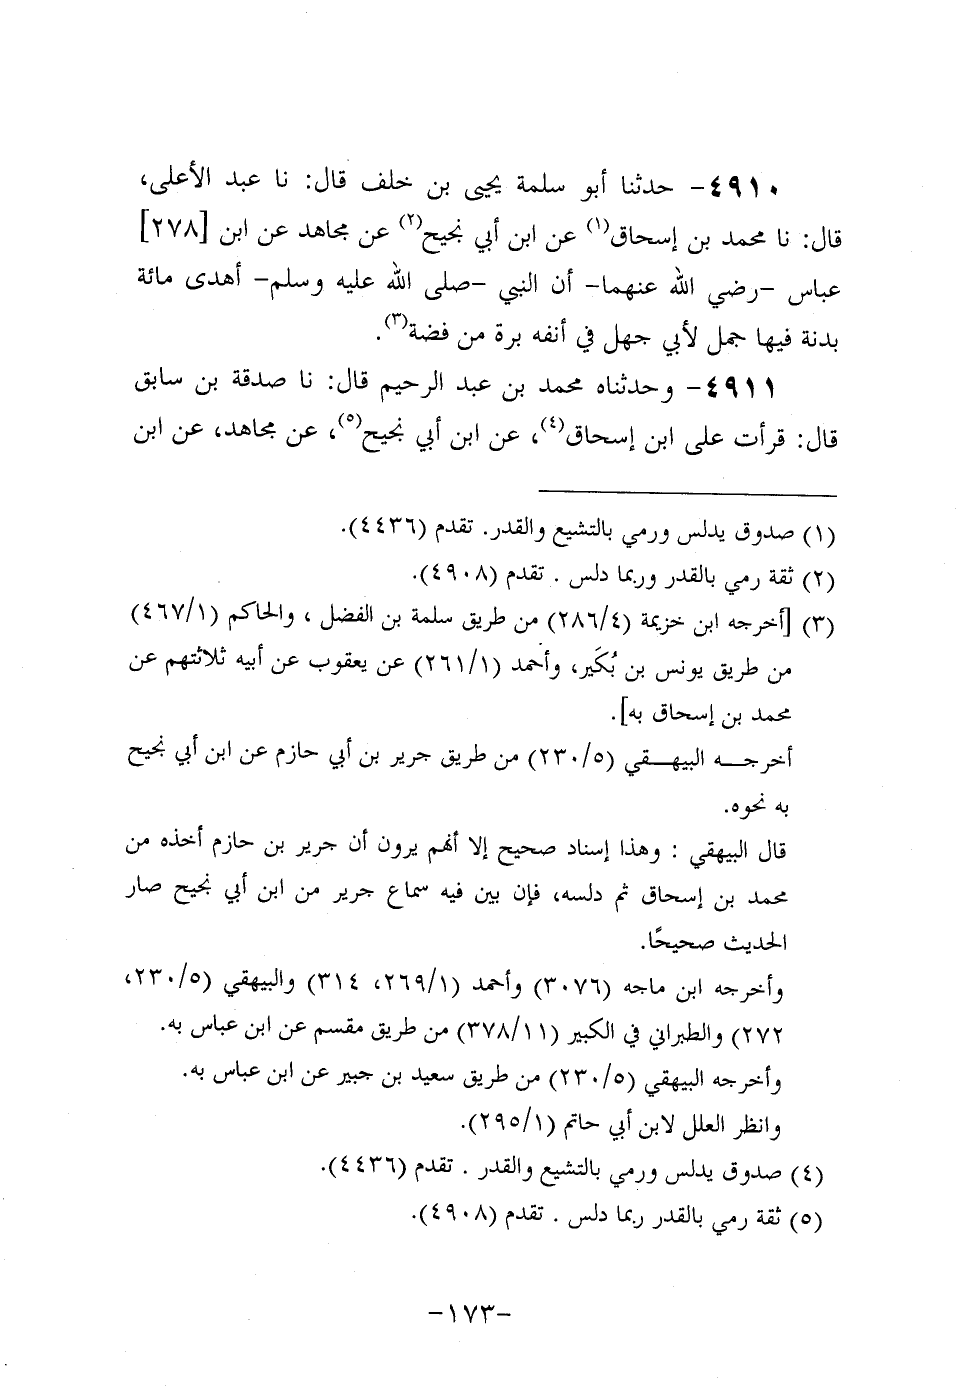 ٤٩١٠- حدثنا أبو سلمة يحيى بن خلف قال: نا عبد الأعلى،
قال: نا محمد بن إسحاق(١) عن ابن أبي نجيح(٢) عن مجاهد عن ابن [٢٧٨]
عباس -رضي الله عنهما- أن النبي -صلى الله عليه وسلم- أهدى مائة
بدنة فيها جمل لأبي جهل في أنفه برة من فضة(٣).
٤٩١١- وحدثناه محمد بن عبد الرحيم قال: نا صدقة بن سابق
قال: قرأت على ابن إسحاق(٤)، عن ابن أبي نجيح(٥)، عن مجاهد، عن ابن
(١) صدوق يدلس ورمي بالتشيع والقدر. تقدم (٤٤٣٦).
(٢) ثقة رمي بالقدر وربما دلس . تقدم (٤٩٠٨).
(٣) [أخرجه ابن خزيمة (٢٨٦/٤) من طريق سلمة بن الفضل ، والحاكم (٤٦٧/١)
من طريق يونس بن بُكَير، وأحمد (٢٦١/١) عن يعقوب عن أبيه ثلاثتهم عن
محمد بن إسحاق به].
أخرجـــه البيهـــقي (٢٣٠/٥) من طريق جرير بن أبي حازم عن ابن أبي نجيح
به نحوه.
قال البيهقي : وهذا إسناد صحيح إلا أنهم يرون أن جرير بن حازم أخذه من
محمد بن إسحاق ثم دلسه، فإن بين فيه سماع جرير من ابن أبي نجيح صار
الحديث صحيحًا.
وأخرجه ابن ماجه (٣٠٧٦) وأحمد (٢٦٩/١، ٣١٤) والبيهقي (٢٣٠/٥،
٢٧٢) والطبراني في الكبير (٣٧٨/١١) من طريق مقسم عن ابن عباس به.
وأخرجه البيهقي (٢٣٠/٥) من طريق سعيد بن جبير عن ابن عباس به.
وانظر العلل لابن أبي حاتم (٢٩٥/١).
(٤) صدوق يدلس ورمي بالتشيع والقدر . تقدم (٤٤٣٦).
(٥) ثقة رمي بالقدر ربما دلس . تقدم (٤٩٠٨).
-١٧٣-